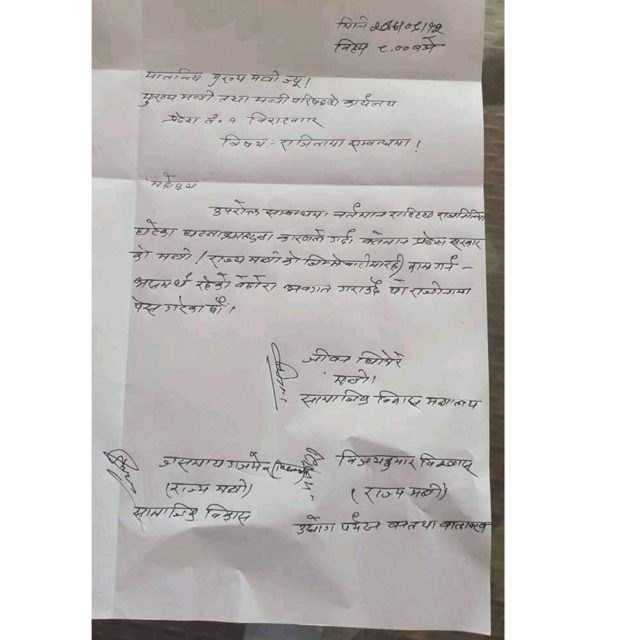 मिति
बिहान ८.०० बजे
माननिय मुख्य मन्त्री ज्यू!
मुख्य मन्त्री तथा मन्त्री परिषदको कार्यालय
प्रदेश नं. १ बिराटनगर
विषय:- राजिनामा सम्बन्धमा!
महोदय
उपरोक्त सम्बन्धमा वर्तमान राष्ट्रिय राजनितिमा
घटेका घटनाक्रमहरुका कारणले गर्दा वर्तमान प्रदेश सरकार
को मन्त्री / राज्य मन्त्री को जिम्मेवारीमा रही काम गर्न -
असमर्थ रहेको बेहोरा अवगत गराउँदै यो राजीनामा
पेस गरेका छौं!
जीवन घिमिरे
मन्त्री।
सामाजिक विकास मन्त्रालय
जसमाया गजमेर
(राज्य मन्त्री)
सामाजिक विकास
विजयकुमार विश्वास
(राज्य मन्त्री)
उद्योग पर्यटन वन तथा वातावरण